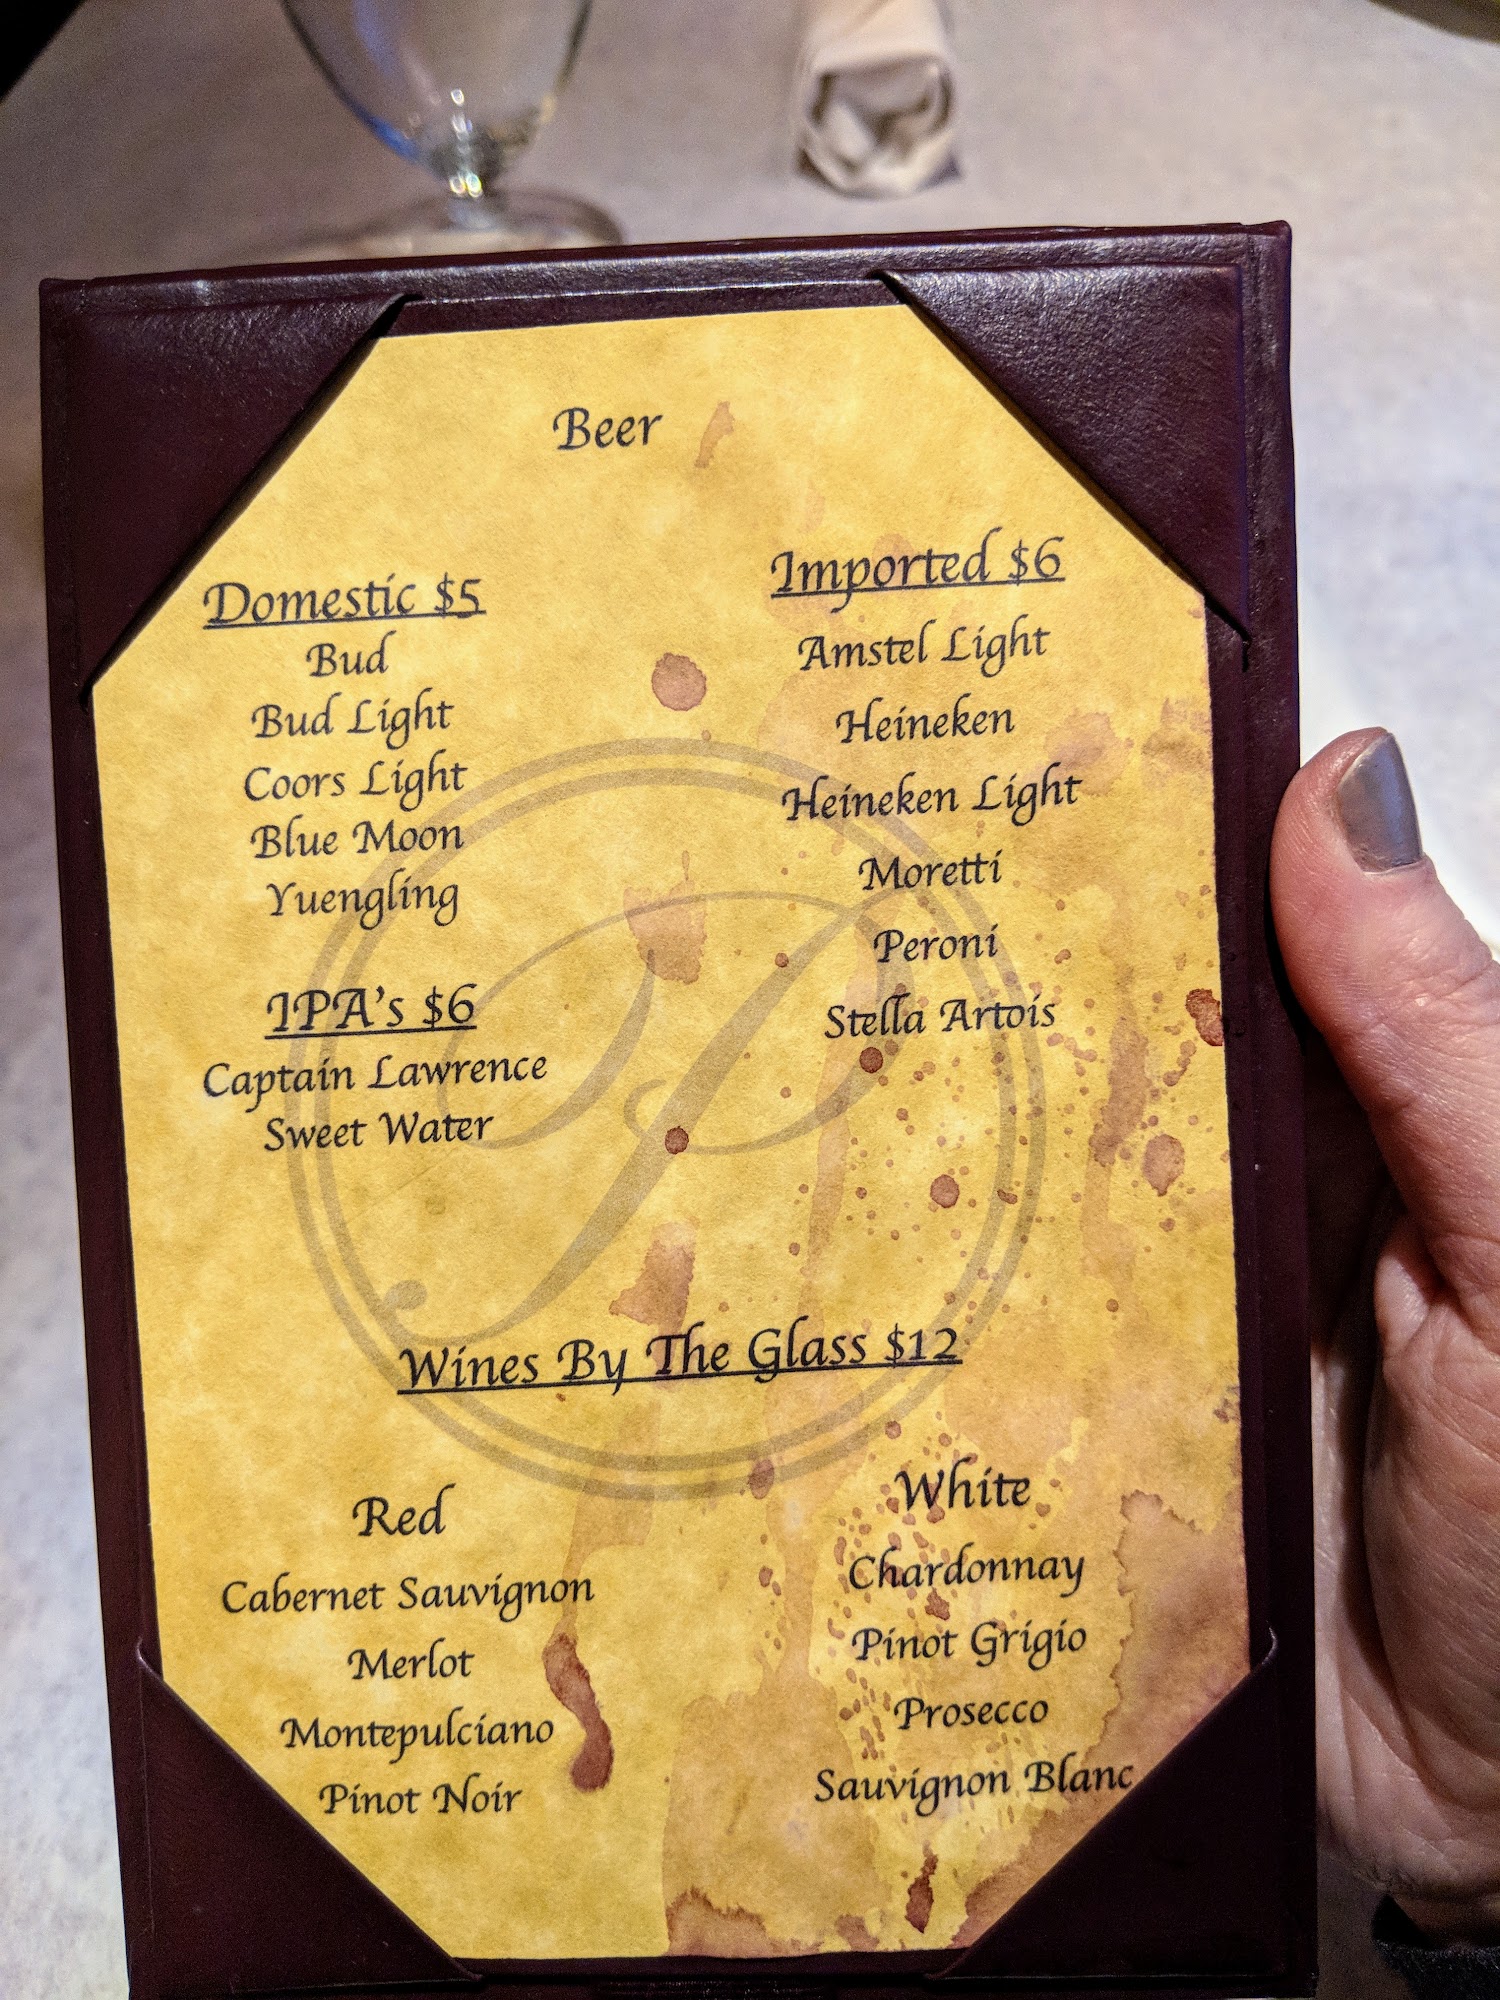 Beer
Domestic $5
Bud
Bud Light
Coors Light
Blue Moon
Yuengling
IPA's $6
Captain Lawrence
Sweet Water
Imported $6
Amstel Light
Heineken
Heineken Light
Moretti
Peroni
Stella Artois
Wines By The Glass $12
Red
Cabernet Sauvignon
Merlot
Montepulciano
Pinot Noir
White
Chardonnay
Pinot Grigio
Prosecco
Sauvignon Blanc
P